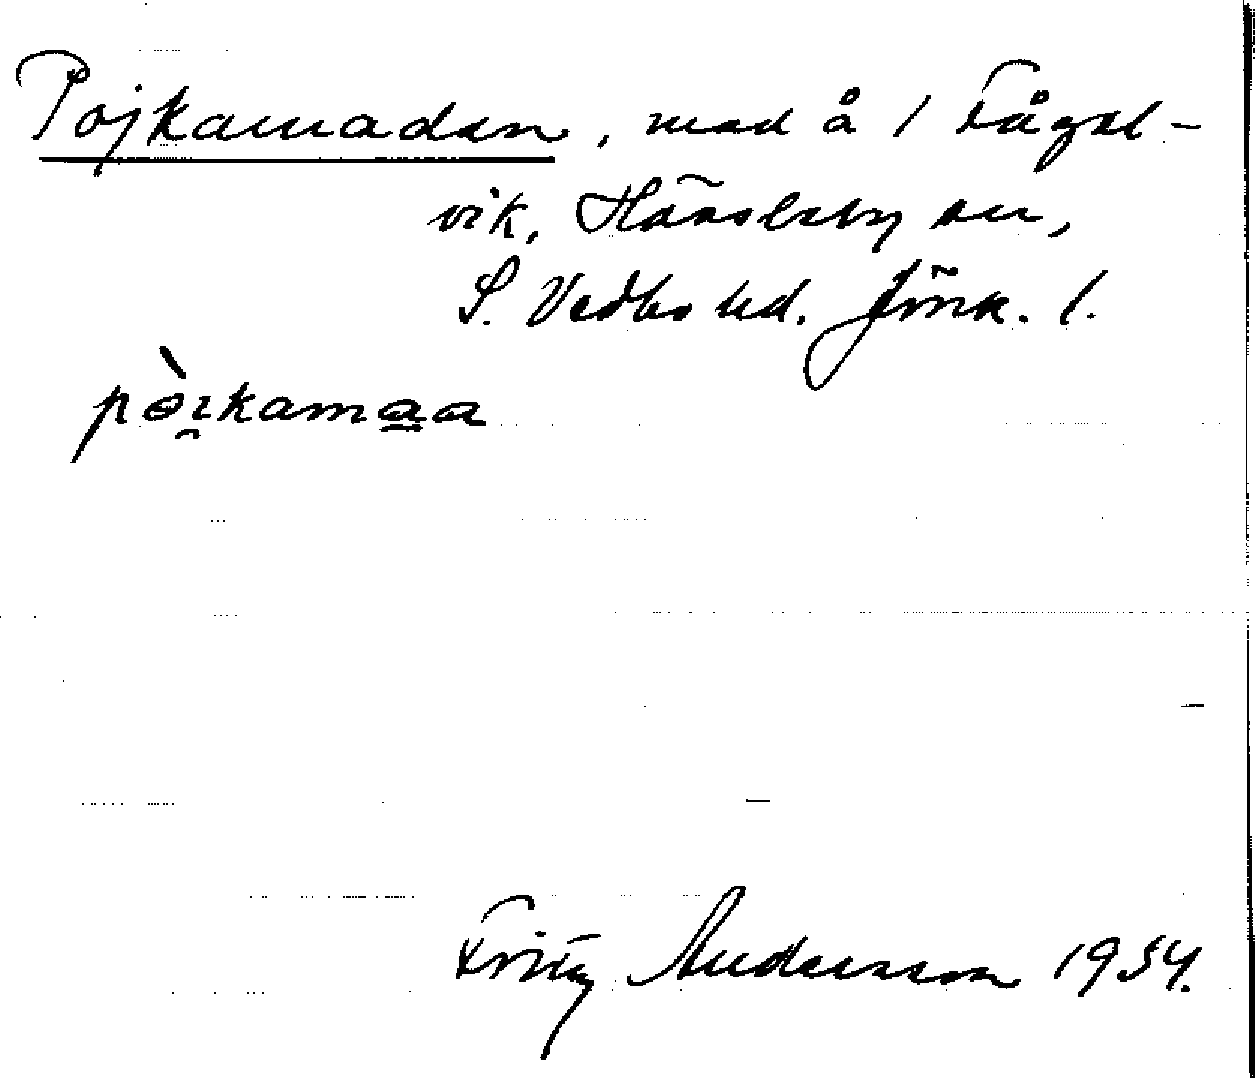 Pojkamaden, mad å / Fågel-
vik, Hässleby sn,
S. Vedbo hd. Jönk. l.
pòɪ̯kama̲a
Fritz Andersson 1954.